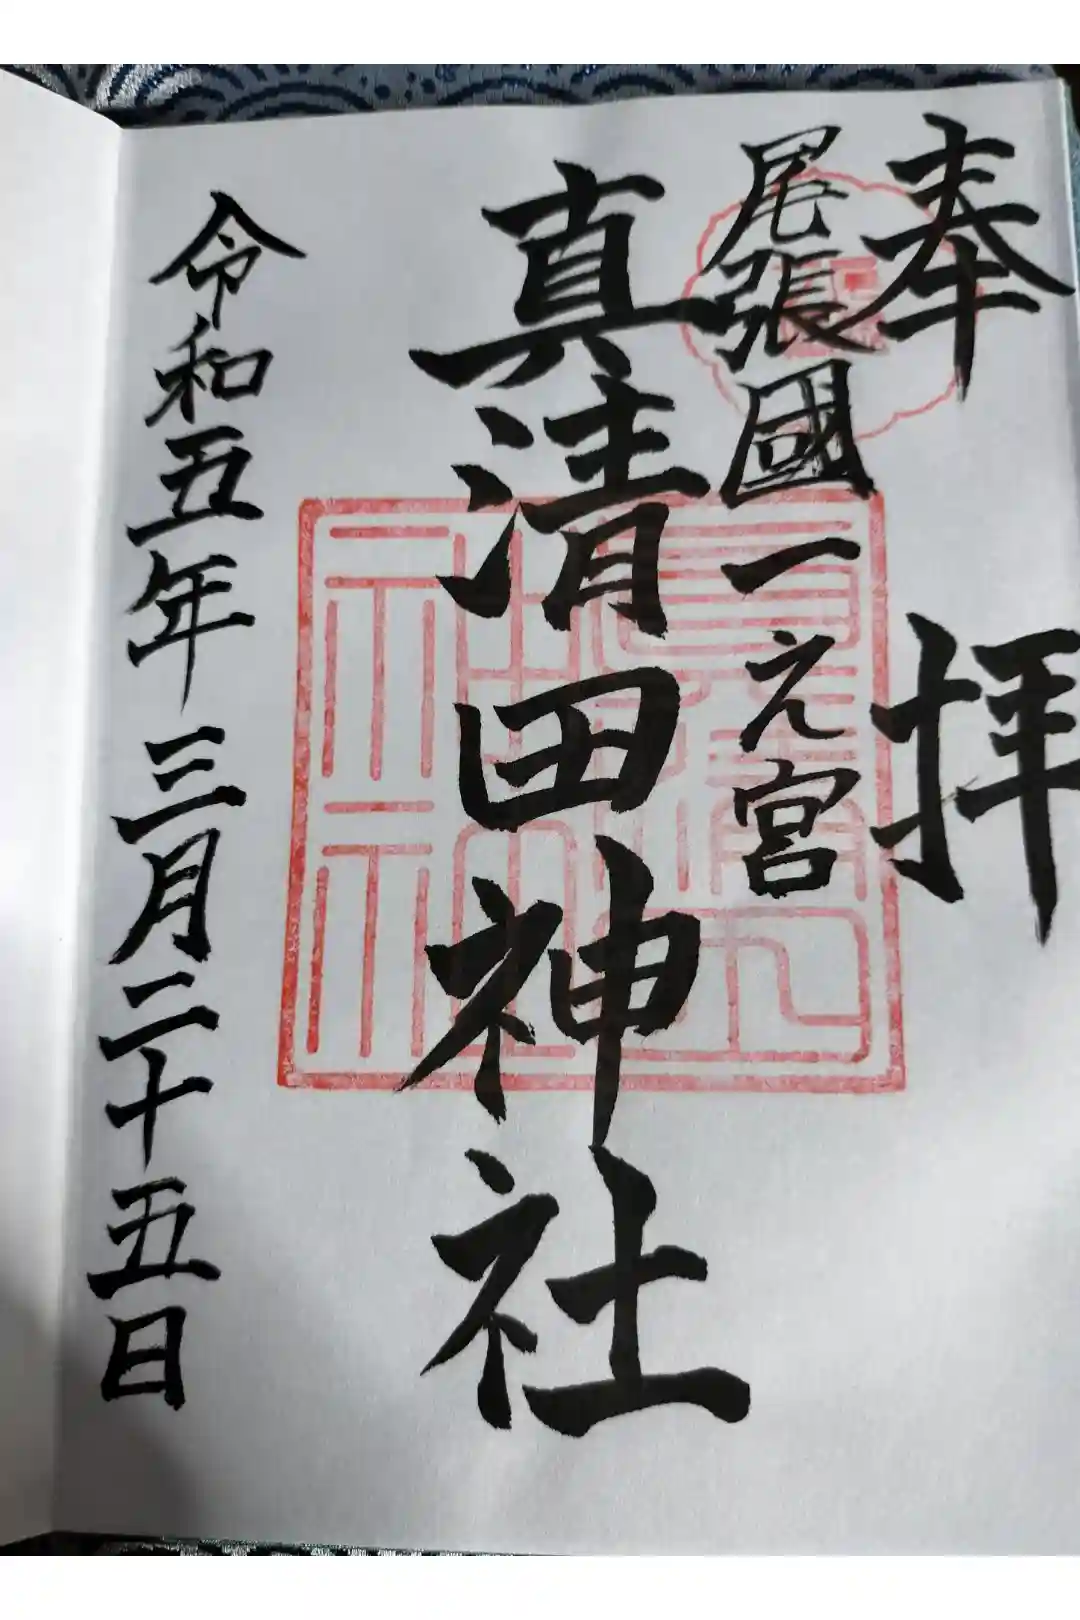 奉拝
尾張國一之宮
真清田神社
令和五年三月二十五日